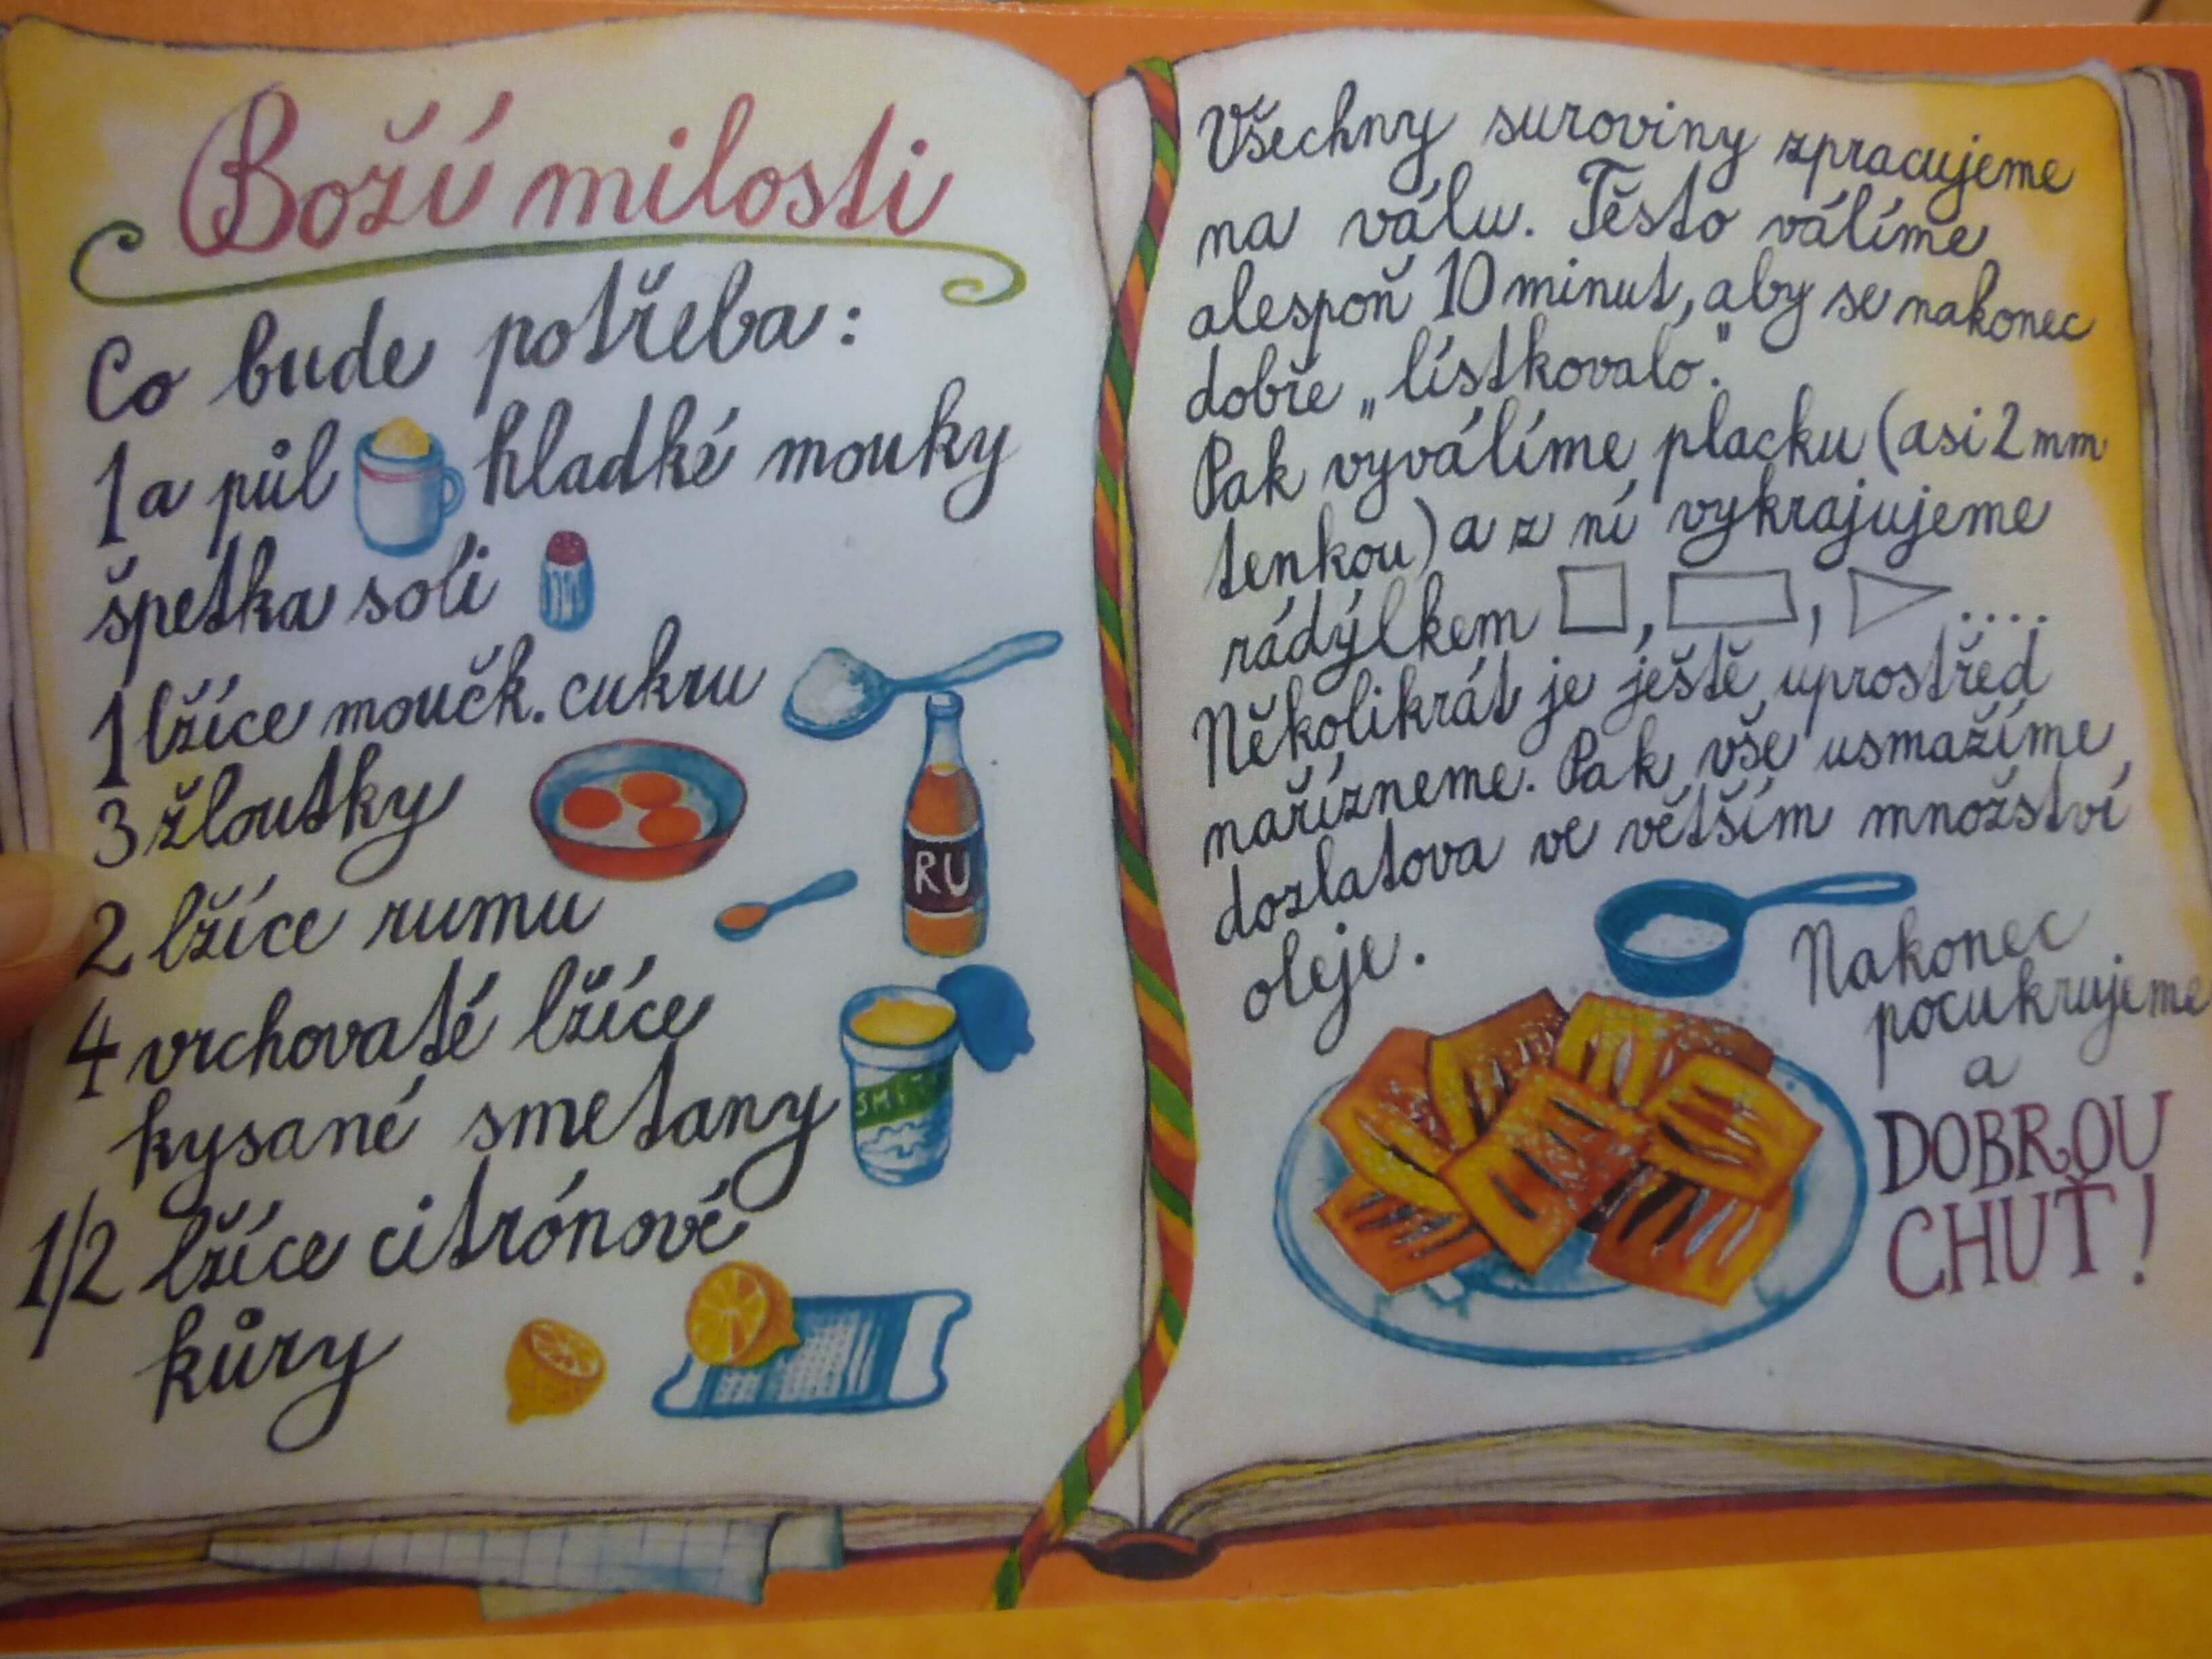 Boží milosti
Co bude potřeba:
1 a půl hladké mouky
špetka soli
1 lžíce moučk. cukru
3 žloutky
RU
2 lžíce rumu
4 vrchovaté lžíce
kysané smetany
SMET
1/2 lžíce citrónové
kůry
Všechny suroviny zpracujeme
na válu. Těsto válíme
alespoň 10 minut, aby se nakonec
dobře „lístkovalo."
Pak vyválíme placku (asi 2 mm
tenkou) a z ní vykrajujeme
rádýlkem , , ....
Několikrát je ještě uprostřed
nařízneme. Pak vše usmažíme
dozlatova ve větším množství
oleje.
Nakonec
pocukrujeme
a
DOBROU
CHUŤ!